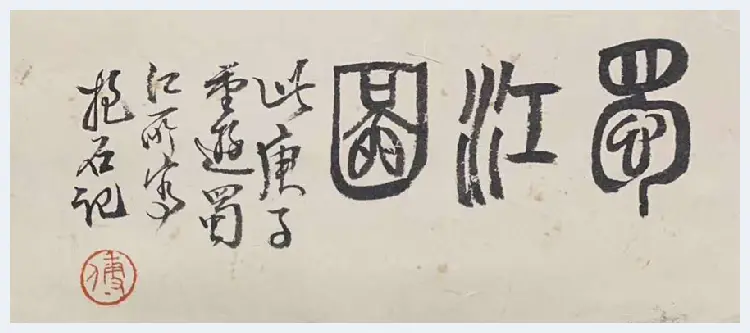 蜀江圖
此庚子
重遊蜀
江所寫
抱石記
傅